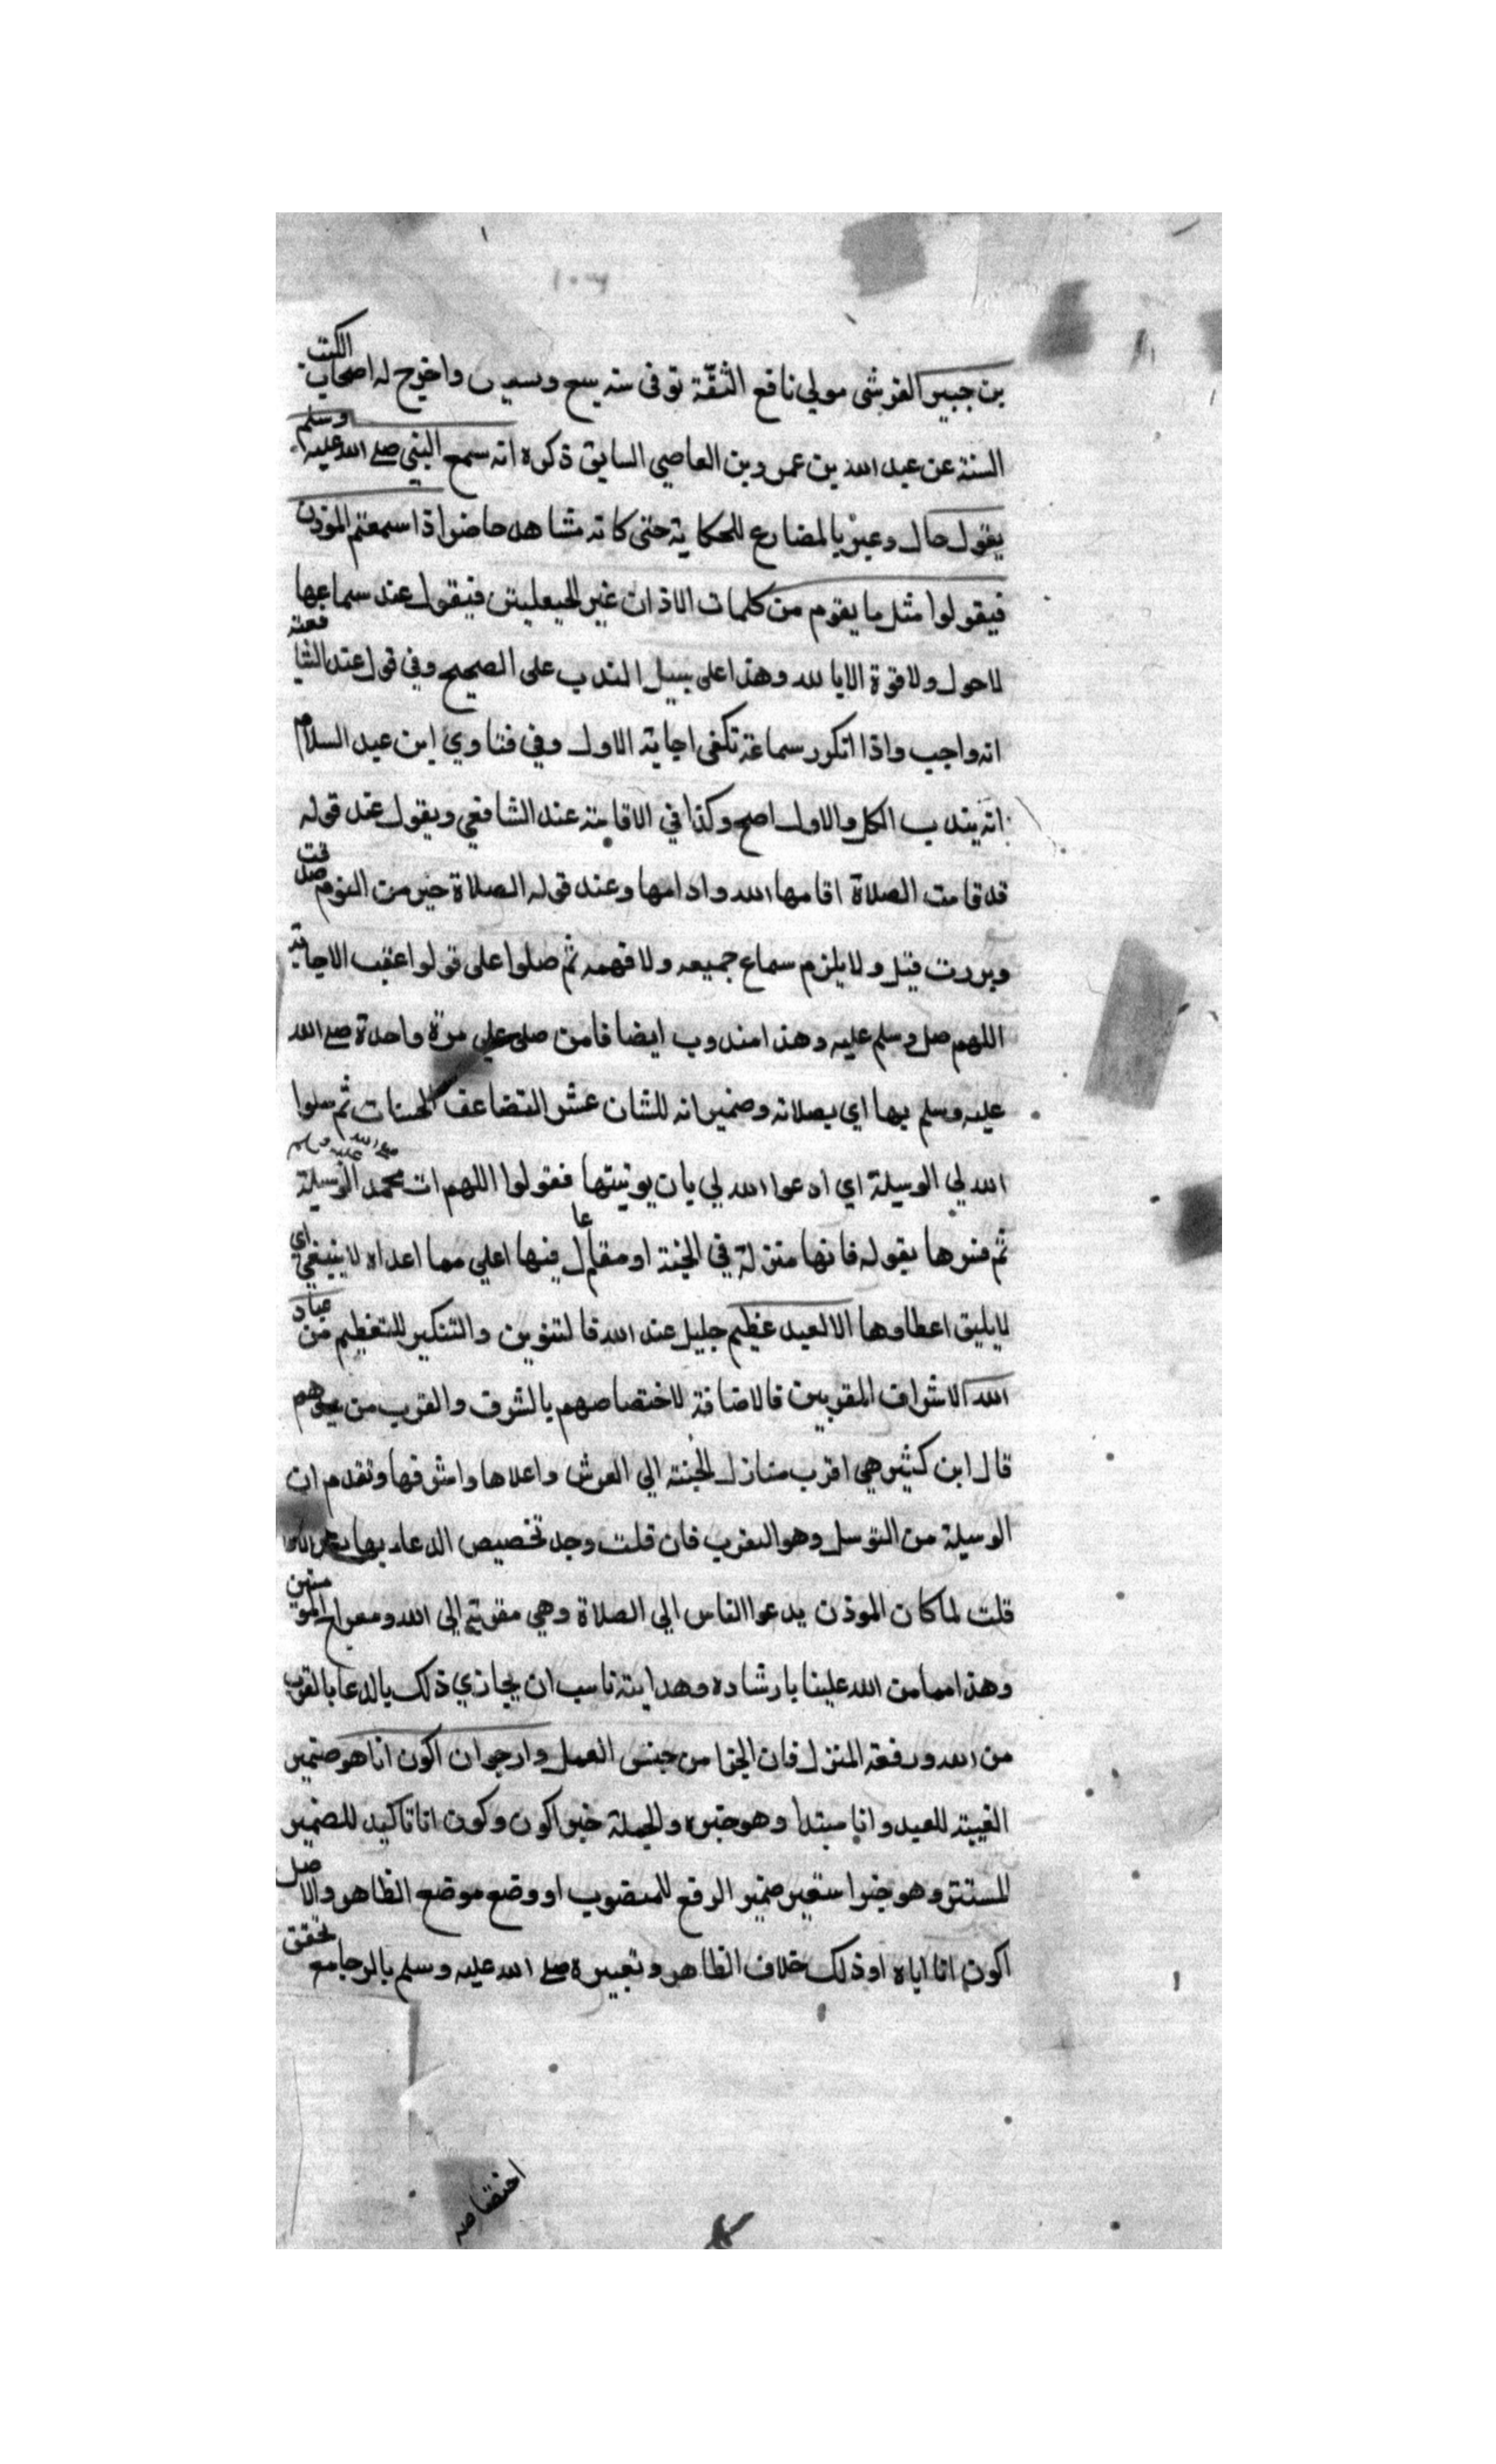 بن جبير القرشي مولي نافع الثقة توفي سنة سبع وتسعين واخرج له اصحاب الكتب
الستة عن عبد الله بن عمرو بن العاصي السابق ذكره انه سمع النبي صلي الله عليه وسلم
يقول حال وعبر بالمضارع للحكاية حتى كانه مشاهد حاضر اذا سمعتم الموذن
فيقولوا مثل ما يقوم من كلمات الاذان غير الحيعليتن فيقول عند سماعها
لاحول ولا قوة الا بالله وهذا على سبيل الندب على الصحيح وفي قول عند الشافعية
انه واجب واذا اتكرر سماعه تكفي اجابة الاول وفي فتاوي ابن عبد السلام
انه يندب الكل والاول اصح وكذا في الاقامة عند الشافعي ويقول عند قوله
قد قامت الصلاة اقامها الله وادامها وعند قوله الصلاة خير من النوم صدقت
وبررت قيل ولا يلزم سماع جميعه ولا فهمه ثم صلوا على قولوا عقب الاجابة
اللهم صل وسلم عليه وهذا مندوب ايضا فامن صلى علي مرة واحدة صلي الله
عليه وسلم بها اي بصلاته وضمير انه للشان عشر التضاعف الحسنات ثم سلوا
الله لي الوسيلة اي ادعوا الله لي بان يوتيتها فقولوا اللهم ات محمد صلى الله عليه وسلم الوسيلة
ثم فسرها بقوله فانها منزلة في الجنة او مقام عال فيها اعلي مما اعداه لا ينبغي اي
لا يليق اعطاوها الا لعبد عظيم جليل عند الله فالتنوين والتنكير للتعظيم من عباد
الله الاشراف المقربين فالاضافة لاختصاصهم بالشرف والقرب من غيرهم
قال ابن كثير هي اقرب منازل الجنة الي العرش واعلاها واشرفها وتقدم ان
الوسيلة من التوسل وهو التقرب فان قلت وجد تخصيص الدعاء بها
قلت لما كان الموذن يدعوا الناس الي الصلاة وهي مقربة الي الله ومعراج المومنين
وهذا مما من الله علينا بارشاده وهدايته ناسب ان يجازي ذلك بالدعا بالقرب
من الله ورفعة المنزل فان الجزا من جنس العمل وارجوا ان اكون انا هو ضمير
الغيبة للعبد وانا مبتدا وهو خبره والجملة خبر اكون وكون انا تاكيد للضمير
المستتر وهو خبر استعير ضمير الرفع للمنصوب او وضع موضع الظاهر والاصل
اكون انا اياه او ذلك خلاف الظاهر وتعبيره صلي الله عليه وسلم بالرجا مع تحقق
اختصاصه